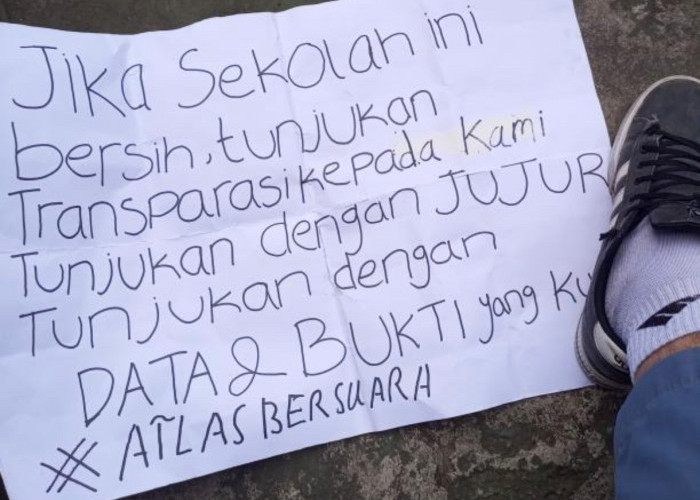 Jika Sekolah ini
bersih, tunjukan
Transparasi kepada Kami
Tunjukan dengan JUJUR
Tunjukan dengan
DATA & BUKTI yang
# ATLAS BERSUARA